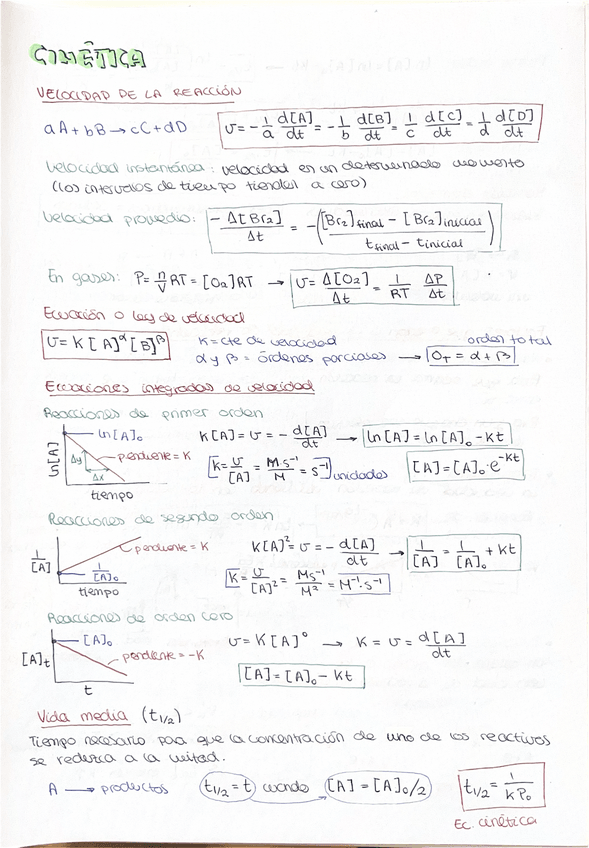 CINÉTICA
VELOCIDAD DE LA REACCIÓN
aA + bB → cC + dD    v = -1/a d[A]/dt = -1/b d[B]/dt = 1/c d[C]/dt = 1/d d[D]/dt
Velocidad instantánea: velocidad en un determinado momento
(los intervalos de tiempo tienden a cero)
Velocidad promedio: -Δ[Br₂]/Δt = -([Br₂]final - [Br₂]inicial / tfinal - tinicial)
En gases: P = n/V RT = [O₂]RT → v = Δ[O₂]/Δt = 1/RT ΔP/Δt
Ecuación o ley de velocidad
v = K[A]^α [B]^β    K = cte de velocidad    orden total
α y β = órdenes parciales → O_T = α + β
Ecuaciones integradas de velocidad
Reacciones de primer orden
ln[A]    ln[A]₀    Δy    Δx    pendiente = K    tiempo
K[A] = v = -d[A]/dt → ln[A] = ln[A]₀ - Kt
[K = v/[A] = M·s⁻¹/M = s⁻¹] unidades    [A] = [A]₀·e^-Kt
Reacciones de segundo orden
1/[A]    pendiente = K    1/[A]₀    tiempo
K[A]² = v = -d[A]/dt → 1/[A] = 1/[A]₀ + Kt
K = v/[A]² = Ms⁻¹/M² = M⁻¹·s⁻¹
Reacciones de orden cero
[A]t    [A]₀    pendiente = -K    t
v = K[A]⁰ → K = v = d[A]/dt
[A] = [A]₀ - Kt
Vida media (t₁/₂)
Tiempo necesario para que la concentración de uno de los reactivos
se reduzca a la mitad.
A → productos    t₁/₂ = t cuando [A] = [A]₀/2    t₁/₂ = 1/kP₀
Ec. cinética